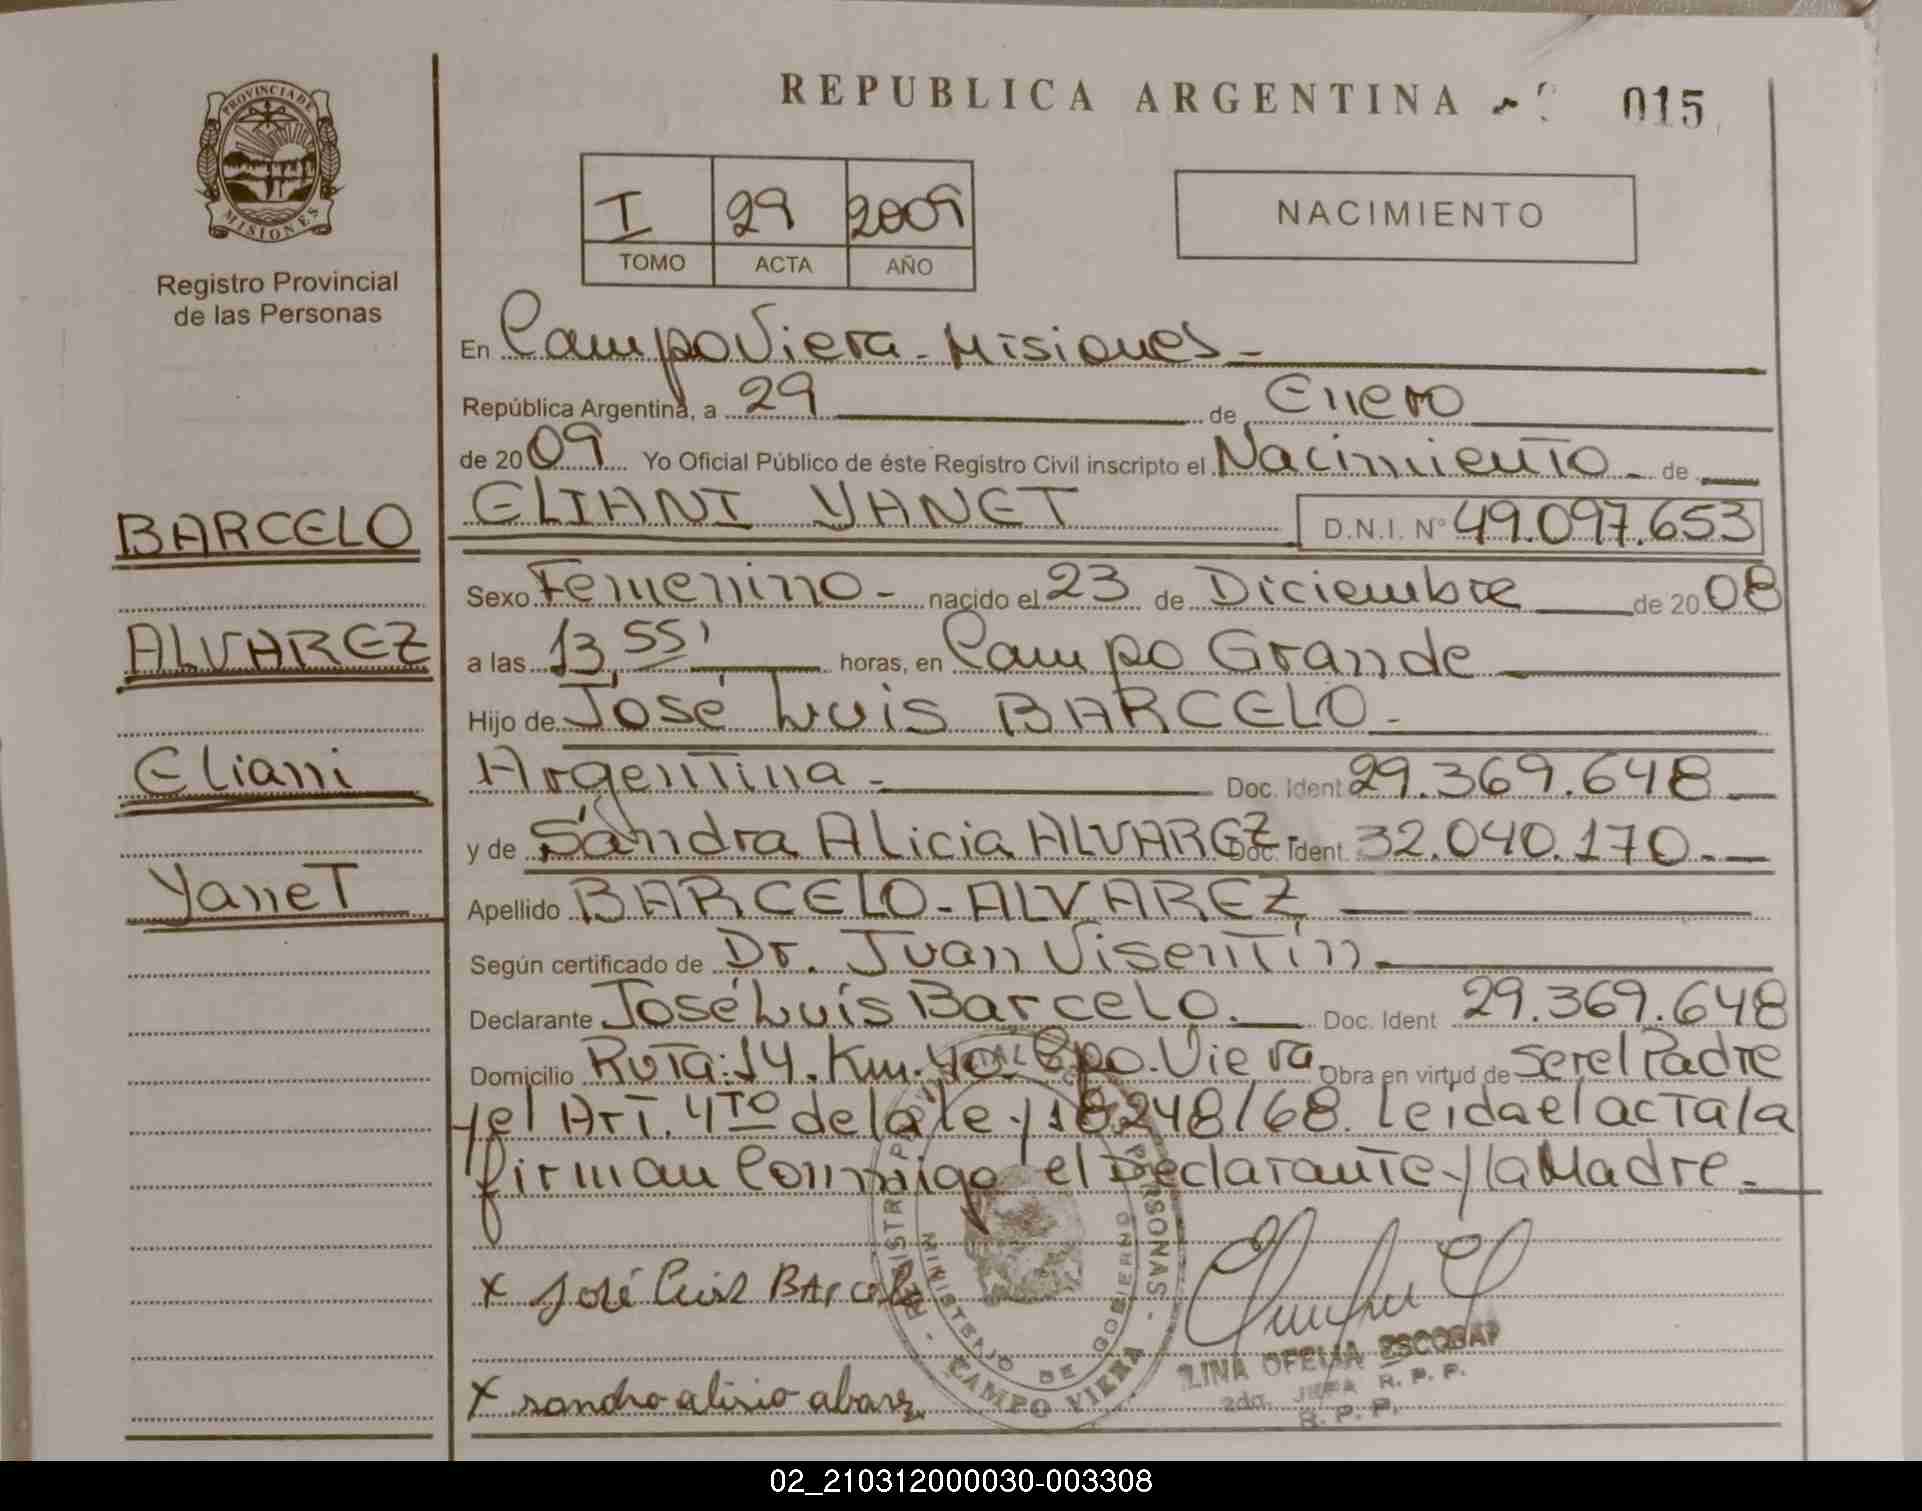 REPUBLICA ARGENTINA
015
PROVINCIA DE
MISIONES
Registro Provincial
de las Personas
I 29 2009
TOMO ACTA AÑO
NACIMIENTO
En Campo Viera - Misiones -
República Argentina, a 29 de Enero
de 2009 Yo Oficial Público de éste Registro Civil inscripto el Nacimiento - de
BARCELO
ELIANI YANET D.N.I. Nº 49.097.653
Sexo Femenino - nacido el 23 de Diciembre de 2008
ALVAREZ
a las 13,55' horas, en Campo Grande
Hijo de José Luis BARCELO -
Eliani
Argentina - Doc. Ident 29.369.648
y de Sandra Alicia ALVAREZ - Doc. Ident. 32.040.170.-
Yanet
Apellido BARCELO - ALVAREZ
Según certificado de Dr. Juan Visentin -
Declarante José Luis Barcelo. Doc. Ident 29.369.648
Domicilio Ruta: 14. Km. 40. Cpo. Viera. Obra en virtud de ser el Padre
y el Art. 4to de la ley 18248/68. Leida el acta la
firman Conmigo el Declarante y la Madre.-
x José Luis Barcelo
x sandra alicia alvarez
MINISTERIO DE GOBIERNO
CAMPO VIERA
LINA OFELIA ESCOBAR
2da. JEFA R. P. P.
R. P. P.
02_210312000030-003308